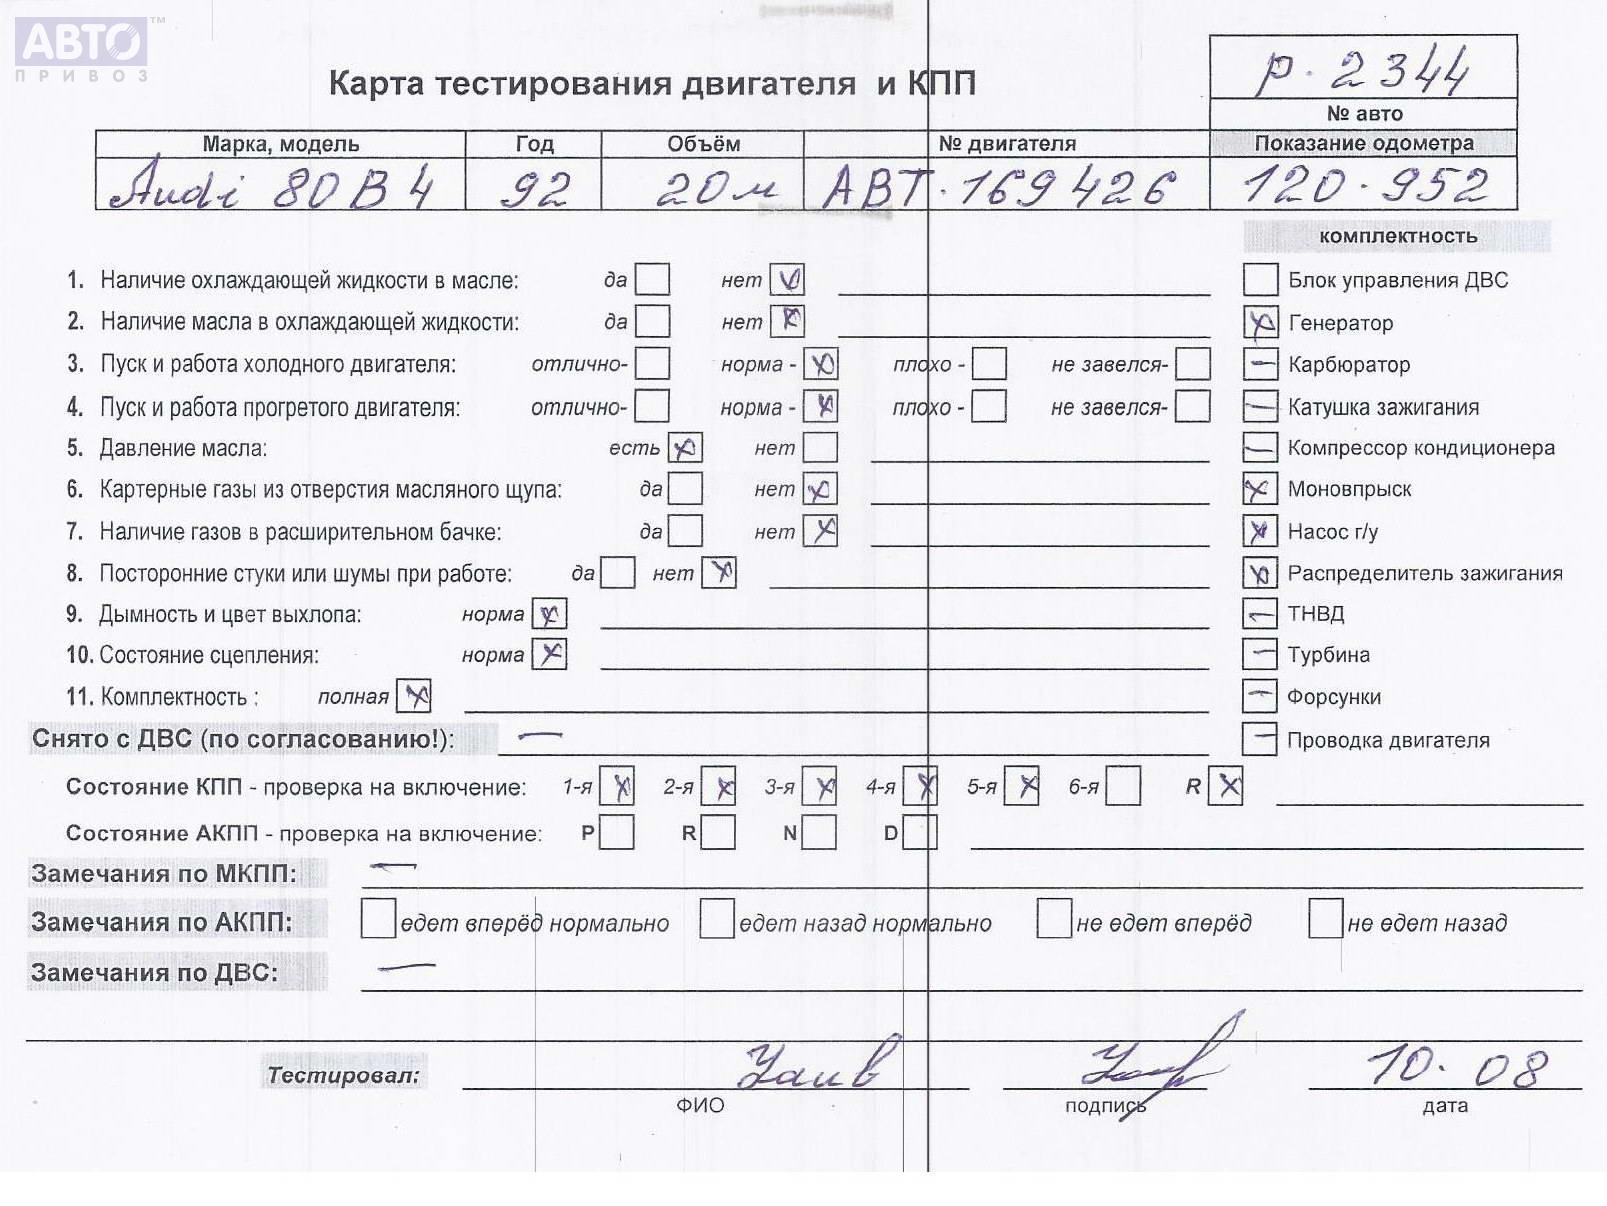 АВТО™
ПРИВОЗ
Карта тестирования двигателя и КПП
р. 2344
№ авто
Марка, модель Год Объём № двигателя Показание одометра
Audi 80 B4 92 20м ABT.169426 120.952
комплектность
1. Наличие охлаждающей жидкости в масле: да нет Блок управления ДВС
2. Наличие масла в охлаждающей жидкости: да нет Генератор
3. Пуск и работа холодного двигателя: отлично- норма - плохо - не завелся- Карбюратор
4. Пуск и работа прогретого двигателя: отлично- норма - плохо - не завелся- Катушка зажигания
5. Давление масла: есть нет Компрессор кондиционера
6. Картерные газы из отверстия масляного щупа: да нет Моновпрыск
7. Наличие газов в расширительном бачке: да нет Насос г/у
8. Посторонние стуки или шумы при работе: да нет Распределитель зажигания
9. Дымность и цвет выхлопа: норма ТНВД
10. Состояние сцепления: норма Турбина
11. Комплектность : полная Форсунки
Снято с ДВС (по согласованию!): — Проводка двигателя
Состояние КПП - проверка на включение: 1-я 2-я 3-я 4-я 5-я 6-я R
Состояние АКПП - проверка на включение: P R N D
Замечания по МКПП: —
Замечания по АКПП: едет вперёд нормально едет назад нормально не едет вперёд не едет назад
Замечания по ДВС: —
Тестировал: 10.08
ФИО подпись дата